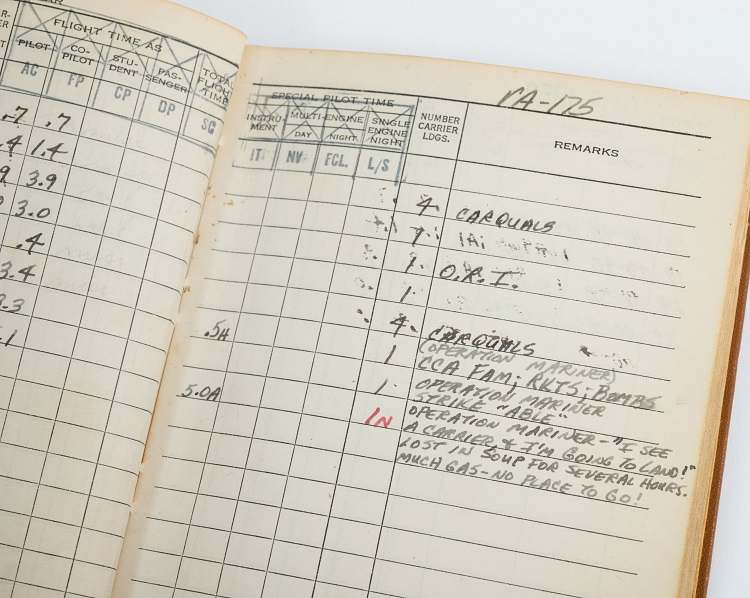 FLIGHT TIME AS
PILOT
CO-
PILOT
STU-
DENT
PAS-
SENGER
TOTAL
FLIGHT
TIME
AC
FP
CP
DP
SG
.7 .7
.4 1.4
9 3.9
3.0
.4
3.4
3.3
.1
VA-175
SPECIAL PILOT TIME
INSTRU-
MENT
MULTI-ENGINE
DAY
NIGHT
SINGLE
ENGINE
NIGHT
NUMBER
CARRIER
LDGS.
REMARKS
IT
NV
FCL.
L/S
4 CARQUALS
1
1 O.R.I.
1
.5H 4 CARQUALS
(OPERATION MARINER)
1 CCA FAM; RKTS; BOMBS
5.0A 1 OPERATION MARINER
STRIKE "ABLE"
1N OPERATION MARINER-"I SEE
A CARRIER & I'M GOING TO LAND!"
LOST IN SOUP FOR SEVERAL HOURS.
MUCH GAS-NO PLACE TO GO!